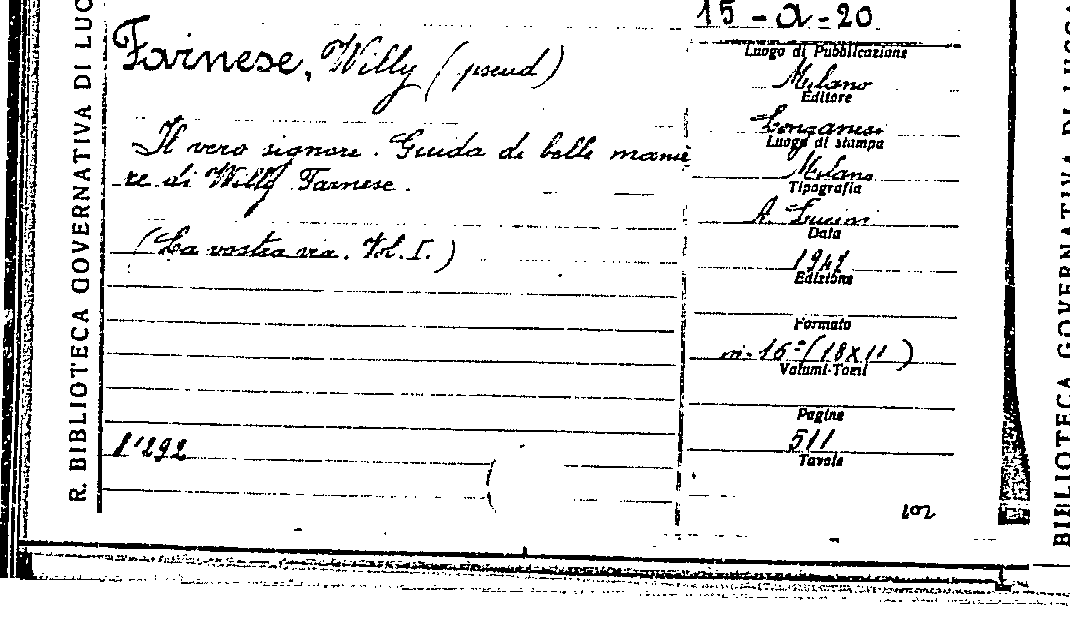 R. BIBLIOTECA GOVERNATIVA DI LUC
15 - a - 20
Farnese, Willy (pseud)
Il vero signore. Guida di belle manie
re di Willy Farnese.
(La vostra via. Vol. I.)
Luogo di Pubblicazione
Milano
Editore
Longanesi
Luogo di stampa
Milano
Tipografia
A. Lucini
Data
1947
Edizione
Formato
in-16° (18x11)
Volumi-Tomi
Pagine
511
Tavole
102
BIBLIOTECA GOVERNATIVA DI LUCCA